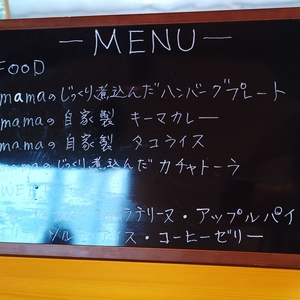 — MENU —
FOOD
mamaのじっくり煮込んだハンバーグプレート
mamaの自家製 キーマカレー
mamaの自家製 タコライス
mamaのじっくり煮込んだカチャトーラ
テリーヌ・アップルパイ
アイス・コーヒーゼリー